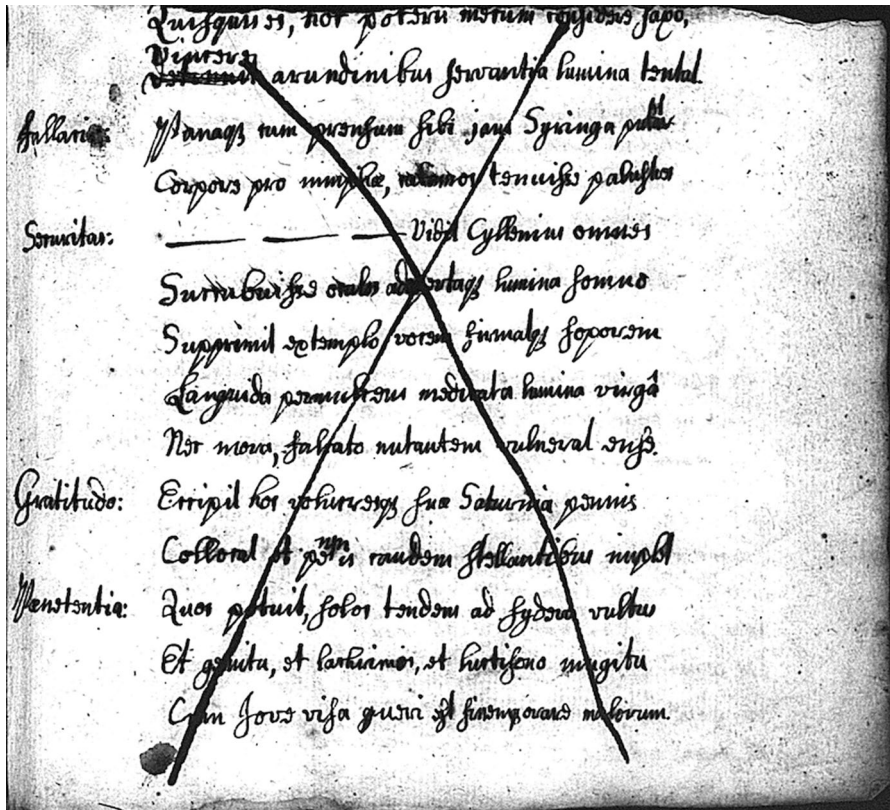 Quisquis es, hoc poteris mecum considere saxo,
Vincere arundinibus servantia lumina tentat.
fallacia: Panaqꝫ cum prensam sibi jam Syringa putat
Corpore pro nymphæ, calamos tenuisse palustres
Securitas: — — — Vidit Cyllenius omnes
Succubuisse oculos adopertaqꝫ lumina somno
Supprimit extemplo vocem firmatqꝫ soporem
Languida permulcens medicata lumina virgâ
Nec mora, falcato nutantem vulnerat ense.
Gratitudo: Excipit hos volucresqꝫ suæ Saturnia pennis
Collocat et caudam stellantibus implet
Pœnetentia: Quos potuit, solos tendens ad sydera vultus
Et gemitu, et lachrimis, et luctisono mugitu
Cum Jove visa queri est finemqꝫ orare malorum.